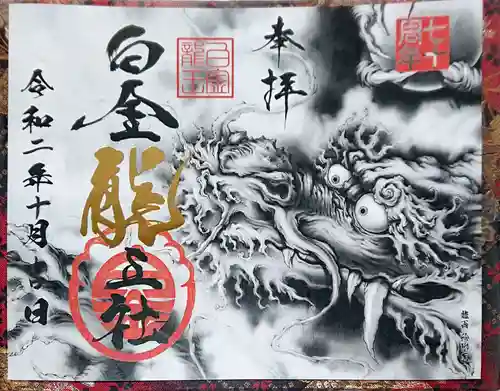 奉拝
七十
周年
白金
龍王
白金龍王社
令和二年十月
日